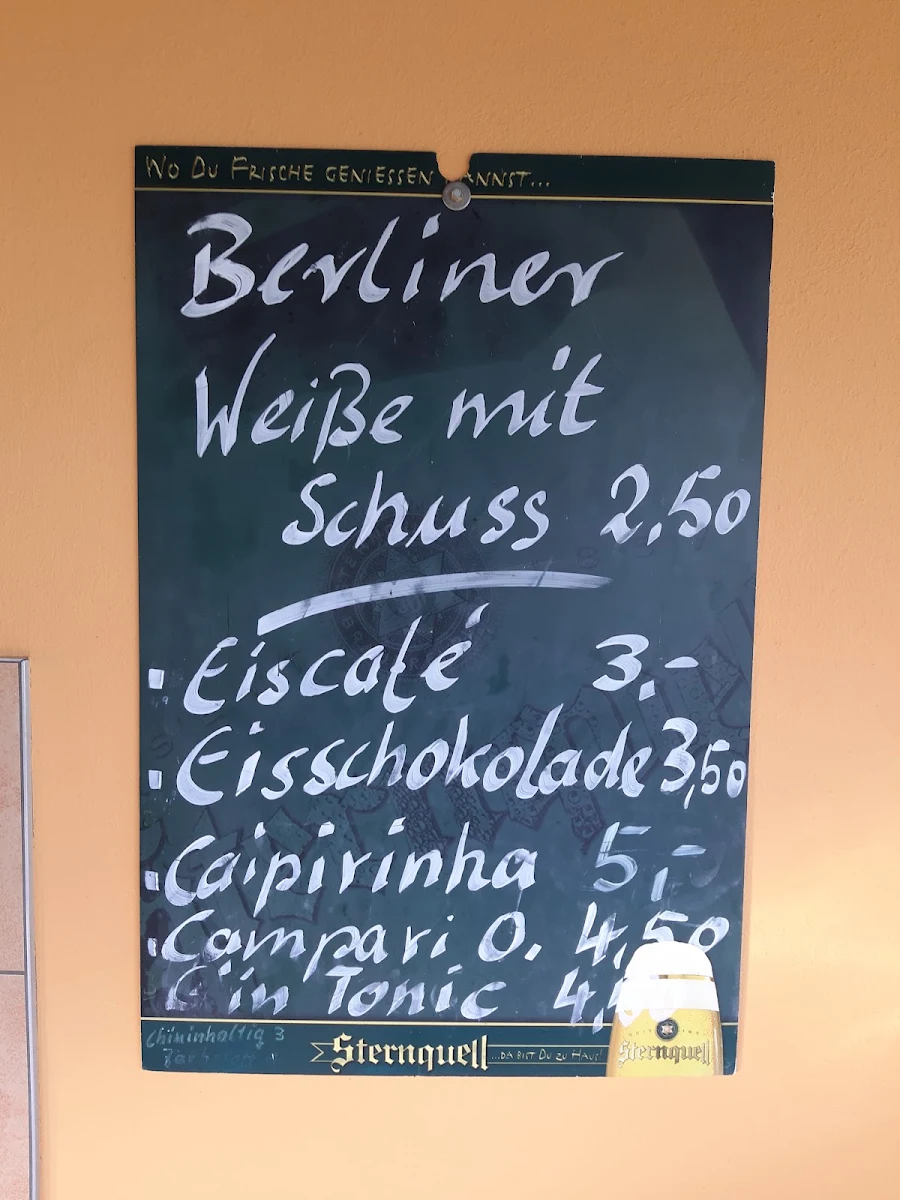 WO DU FRISCHE GENIESSEN KANNST...
Berliner
Weiße mit
Schuss 2,50
Eiscafé 3.-
Eisschokolade 3,50
Caipirinha 5,-
Campari O. 4,50
Gin Tonic
Chininhaltig 3
Sternquell ...DA BIST DU ZU HAUS!
Sternquell